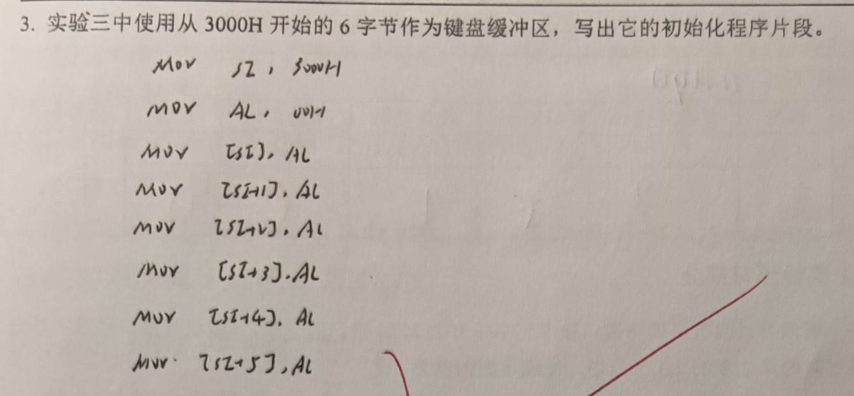 3. 实验三中使用从 3000H 开始的 6 字节作为键盘缓冲区，写出它的初始化程序片段。
MOV SI, 3000H
MOV AL, 00H
MOV [SI], AL
MOV [SI+1], AL
MOV [SI+2], AL
MOV [SI+3], AL
MOV [SI+4], AL
MOV [SI+5], AL